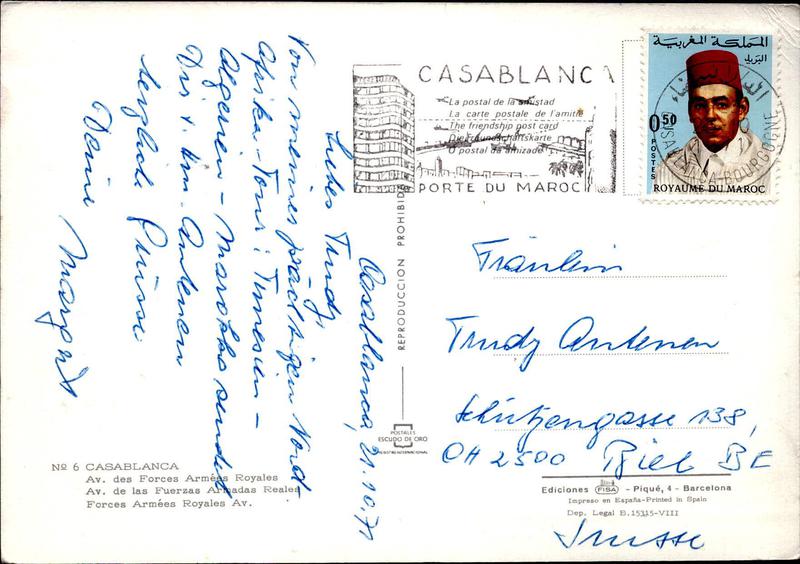 Casablanca, 21.10.71
Liebes Trudy,
Von meiner prächtigen Nord
Afrika-Tour: Tunesien -
Algerien - Marokko sendet
Dir + Fam. Antenen
herzliche Grüsse
Deine Margrit
Nº 6 CASABLANCA
Av. des Forces Armées Royales
Av. de las Fuerzas Armadas Reales
Forces Armées Royales Av.
REPRODUCCION PROHIBIDA
POSTALES
ESCUDO DE ORO
REGISTRO INTERNACIONAL
CASABLANCA
La postal de la amistad
La carte postale de l'amitié
The friendship post card
Die Freundschaftskarte
O postal da amizade
PORTE DU MAROC
المملكة المغربية
البريد
0,50
POSTES
ROYAUME DU MAROC
الدار البيضاء
CASABLANCA-BOURGOGNE
Fräulein
Trudy Antenen
Schützengasse 138,
CH 2500 Biel BE
Suisse
Ediciones FISA - Piqué, 4 - Barcelona
Impreso en España-Printed in Spain
Dep. Legal B. 15315-VIII